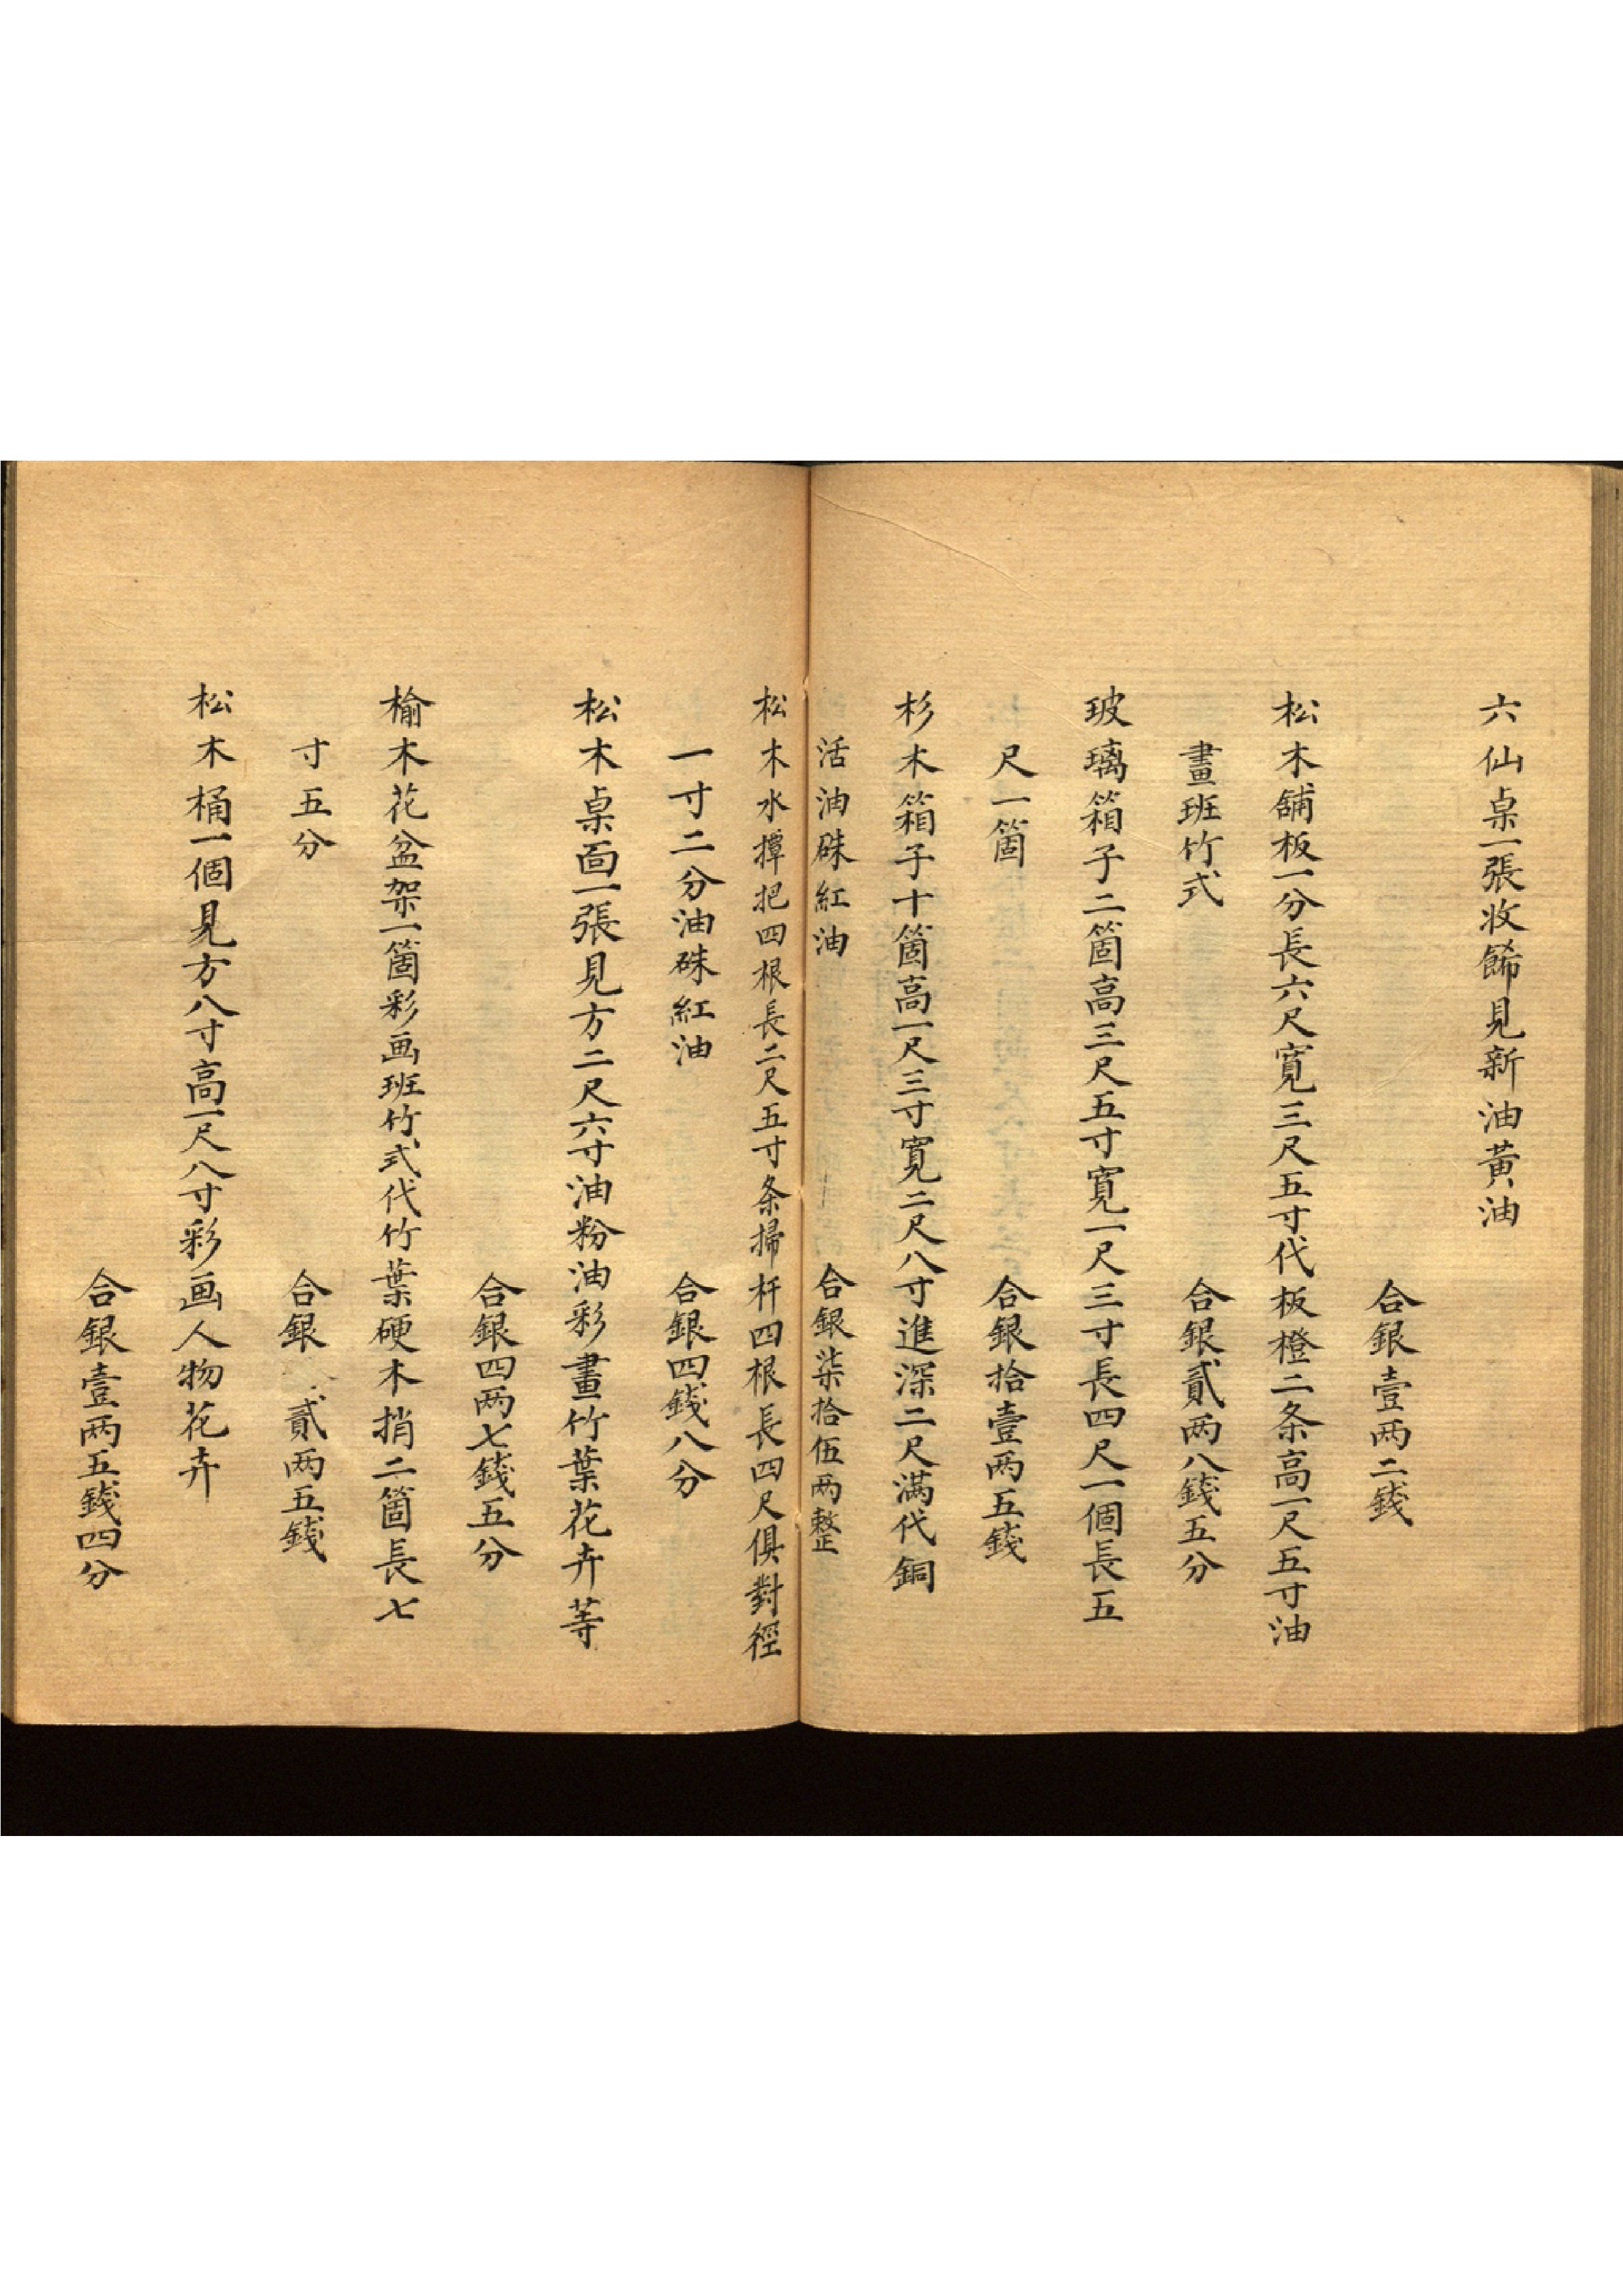 六仙桌一張收餙見新油黃油
合銀壹两二錢
松木舖板一分長六尺寬三尺五寸代板橙二条高一尺五寸油
畫班竹式
合銀貳两八錢五分
玻璃箱子二箇高三尺五寸寬一尺三寸長四尺一個長五
尺一箇
合銀拾壹两五錢
杉木箱子十箇高一尺三寸寬二尺八寸進深二尺满代銅
活油硃紅油
合銀柒拾伍两整
松木水撢把四根長二尺五寸条掃杆四根長四尺俱對徑
一寸二分油硃紅油
合銀四錢八分
松木桌面一張見方二尺六寸油粉油彩畫竹葉花卉等
合銀四两七錢五分
榆木花盆架一箇彩画班竹式代竹葉硬木捎二箇長七
寸五分
合銀貳两五錢
松木桶一個見方八寸高一尺八寸彩画人物花卉
合銀壹两五錢四分